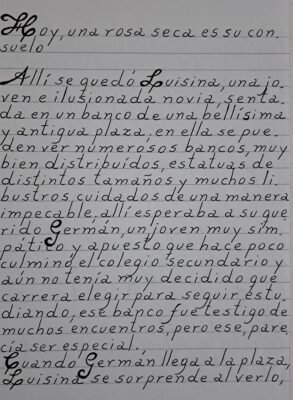 Hoy, una rosa seca es su con
suelo
Allí se quedó Luisina, una jo
ven e ilusionada novia, senta
da en un banco de una bellísima
y antigua plaza, en ella se pue
den vér numerosos bancos, muy
bien distribuídos, estatuas de
distintos tamaños y muchos li
bustros, cuidados de una manera
impecable, allí esperaba a su que
rido Germán, un joven muy sim
pático y apuesto que hace poco
culminó el colegio secundario y
aún no tenía muy decidido qué
carrera elegir para seguir estu
diando, ese banco fue testigo de
muchos encuentros, pero ese, pare
cía ser especial.
Cuando Germán llega a la plaza,
Luisina se sorprende al verlo,